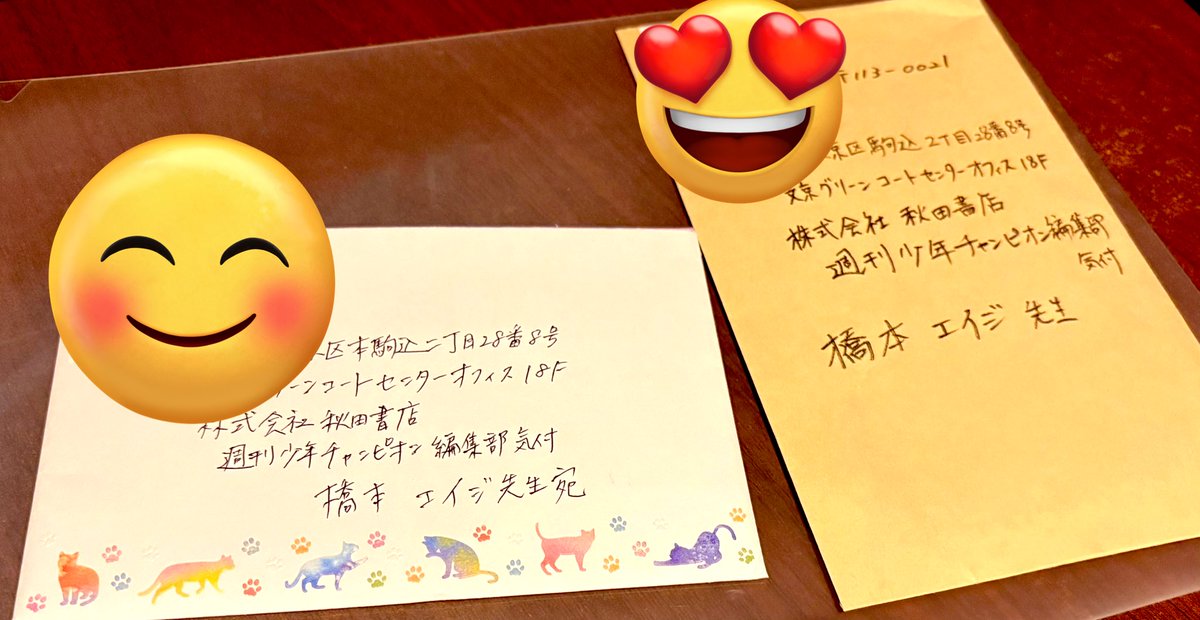 区本駒込二丁目28番8号
リーンコートセンターオフィス18F
株式会社 秋田書店
週刊少年チャンピオン編集部気付
橋本 エイジ先生宛
〒113-0021
京区駒込2丁目28番8号
文京グリーンコートセンターオフィス18F
株式会社 秋田書店
週刊少年チャンピオン編集部
気付
橋本 エイジ 先生